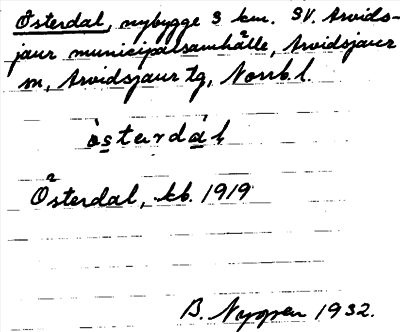 Österdal, nybygge 3 km. SV. Arvids-
jaur municipalsamhälle, Arvidsjaur
sn, Arvidsjaur tg, Norrb. l.
ò̀sterdá̀l
Österdal, kb. 1919
B. Nygren 1932.